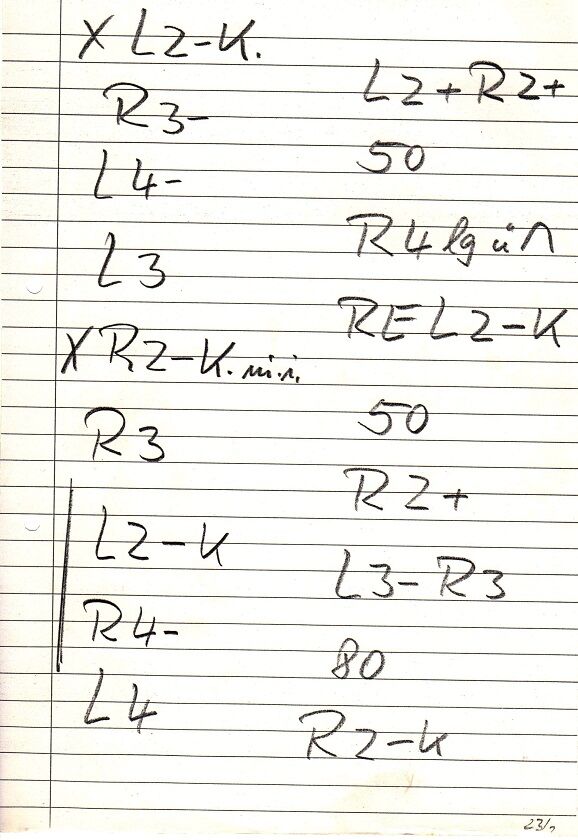 X L2-K.
R3-
L4-
L3
X R2-K. m.i.
R3
L2-K
R4-
L4
L2+R2+
50
R4 lg ü ∩
REL2-K
50
R2+
L3-R3
80
R2-K